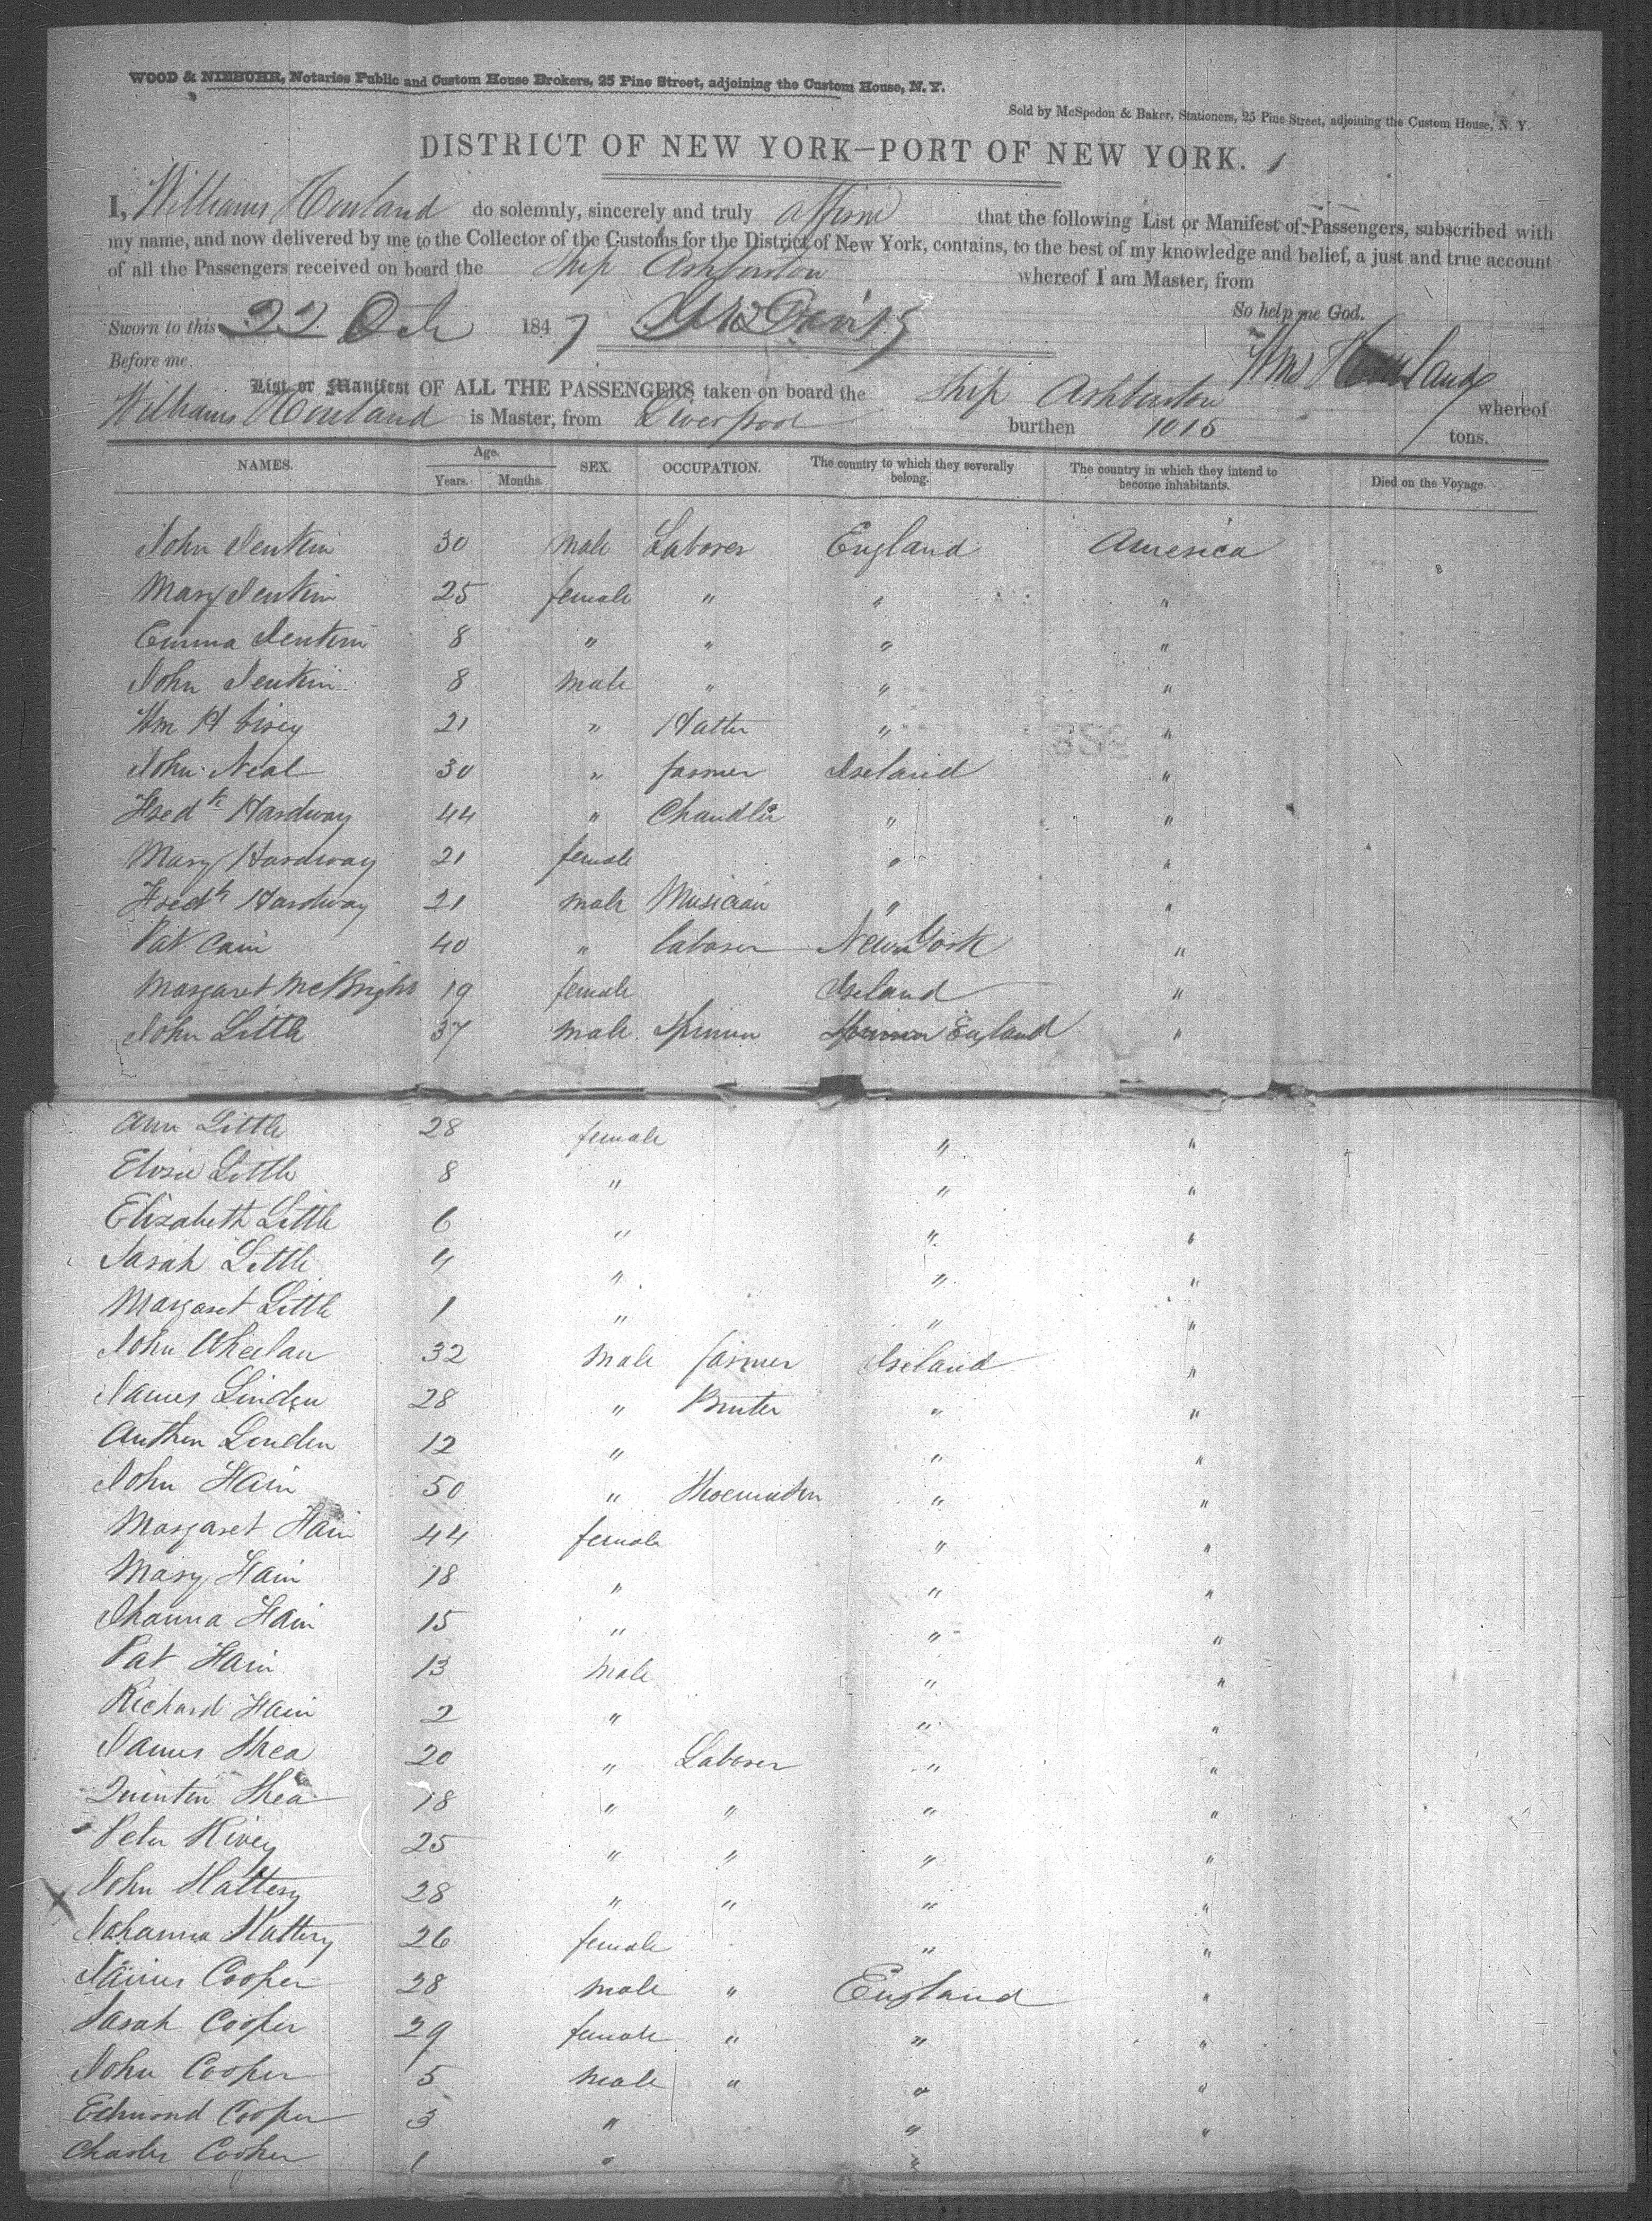 WOOD & NIEBUHR, Notaries Public and Custom House Brokers, 25 Pine Street, adjoining the Custom House, N. Y.
Sold by McSpedon & Baker, Stationers, 25 Pine Street, adjoining the Custom House, N. Y.
DISTRICT OF NEW YORK—PORT OF NEW YORK. 1
I, Williams Howland do solemnly, sincerely and truly affirm that the following List or Manifest of Passengers, subscribed with
my name, and now delivered by me to the Collector of the Customs for the District of New York, contains, to the best of my knowledge and belief, a just and true account
of all the Passengers received on board the Ship Ashburton whereof I am Master, from
So help me God.
Sworn to this 22 Oct 1847 Davis
Wms Howland
Before me,
List or Manifest OF ALL THE PASSENGERS taken on board the Ship Ashburton whereof
Williams Howland is Master, from Liverpool burthen 1015 tons.
NAMES. Age. Years. Months. SEX. OCCUPATION. The country to which they severally belong. The country in which they intend to become inhabitants. Died on the Voyage.
John Jenkin 30 male Laborer England America
Mary Jenkin 25 female " " "
Emma Jenkin 8 " " " "
John Jenkin 8 male " " "
Wm H 21 " Hatter " "
John Neal 30 " farmer Ireland "
Fredk Hardway 44 " Chandler " "
Mary Hardway 21 female " "
Fredk Hardway 21 male Musician " "
Pat Cain 40 " laborer New York "
Margaret McBright 19 female Ireland "
John Little 37 male Spinner England "
Ann Little 28 female " "
Little 8 " " "
Elizabeth Little 6 " " "
Sarah Little 4 " " "
Margaret Little 1 " " "
John Whelan 32 male farmer Ireland "
James Linden 28 " Printer " "
Linden 12 " " "
John Hain 50 " Shoemaker " "
Margaret Hain 44 female " "
Mary Hain 18 " " "
Hain 15 " " "
Pat Hain 13 male " "
Richard Hain 2 " " "
James Shea 20 " Laborer " "
Quinten Shea 18 " " " "
Peter 25 " " " "
John Slattery 28 " " " "
Johanna Slattery 26 female " "
James Cooper 28 male " England "
Sarah Cooper 29 female " " "
John Cooper 5 male " " "
Edmond Cooper 3 " " "
Charles Cooper 1 " "